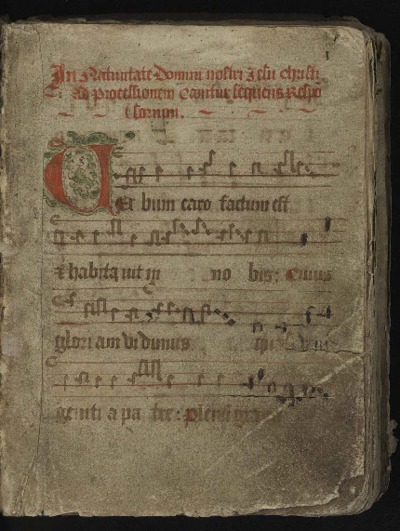 In Natiuitate Domini nostri Jesu Christi
Ad Processionem Cantur sequens Respo
sorium.
Verbum caro factum est
& habitauit in no bis: Cuius
gloriam vidimus
geniti a pa tre: pleni